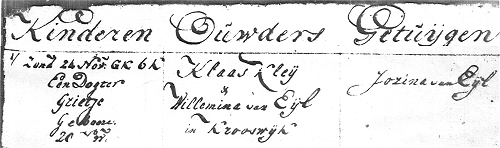 Kinderen Ouwders Getuijgen
1/ Zond 24 Nov. GK 6K
Een Dogter
Grietje
Geboore.
20 Nov
Klaas Kleij
&
Willemina van Eijl
in Krooswijk
Jozina van Eijl